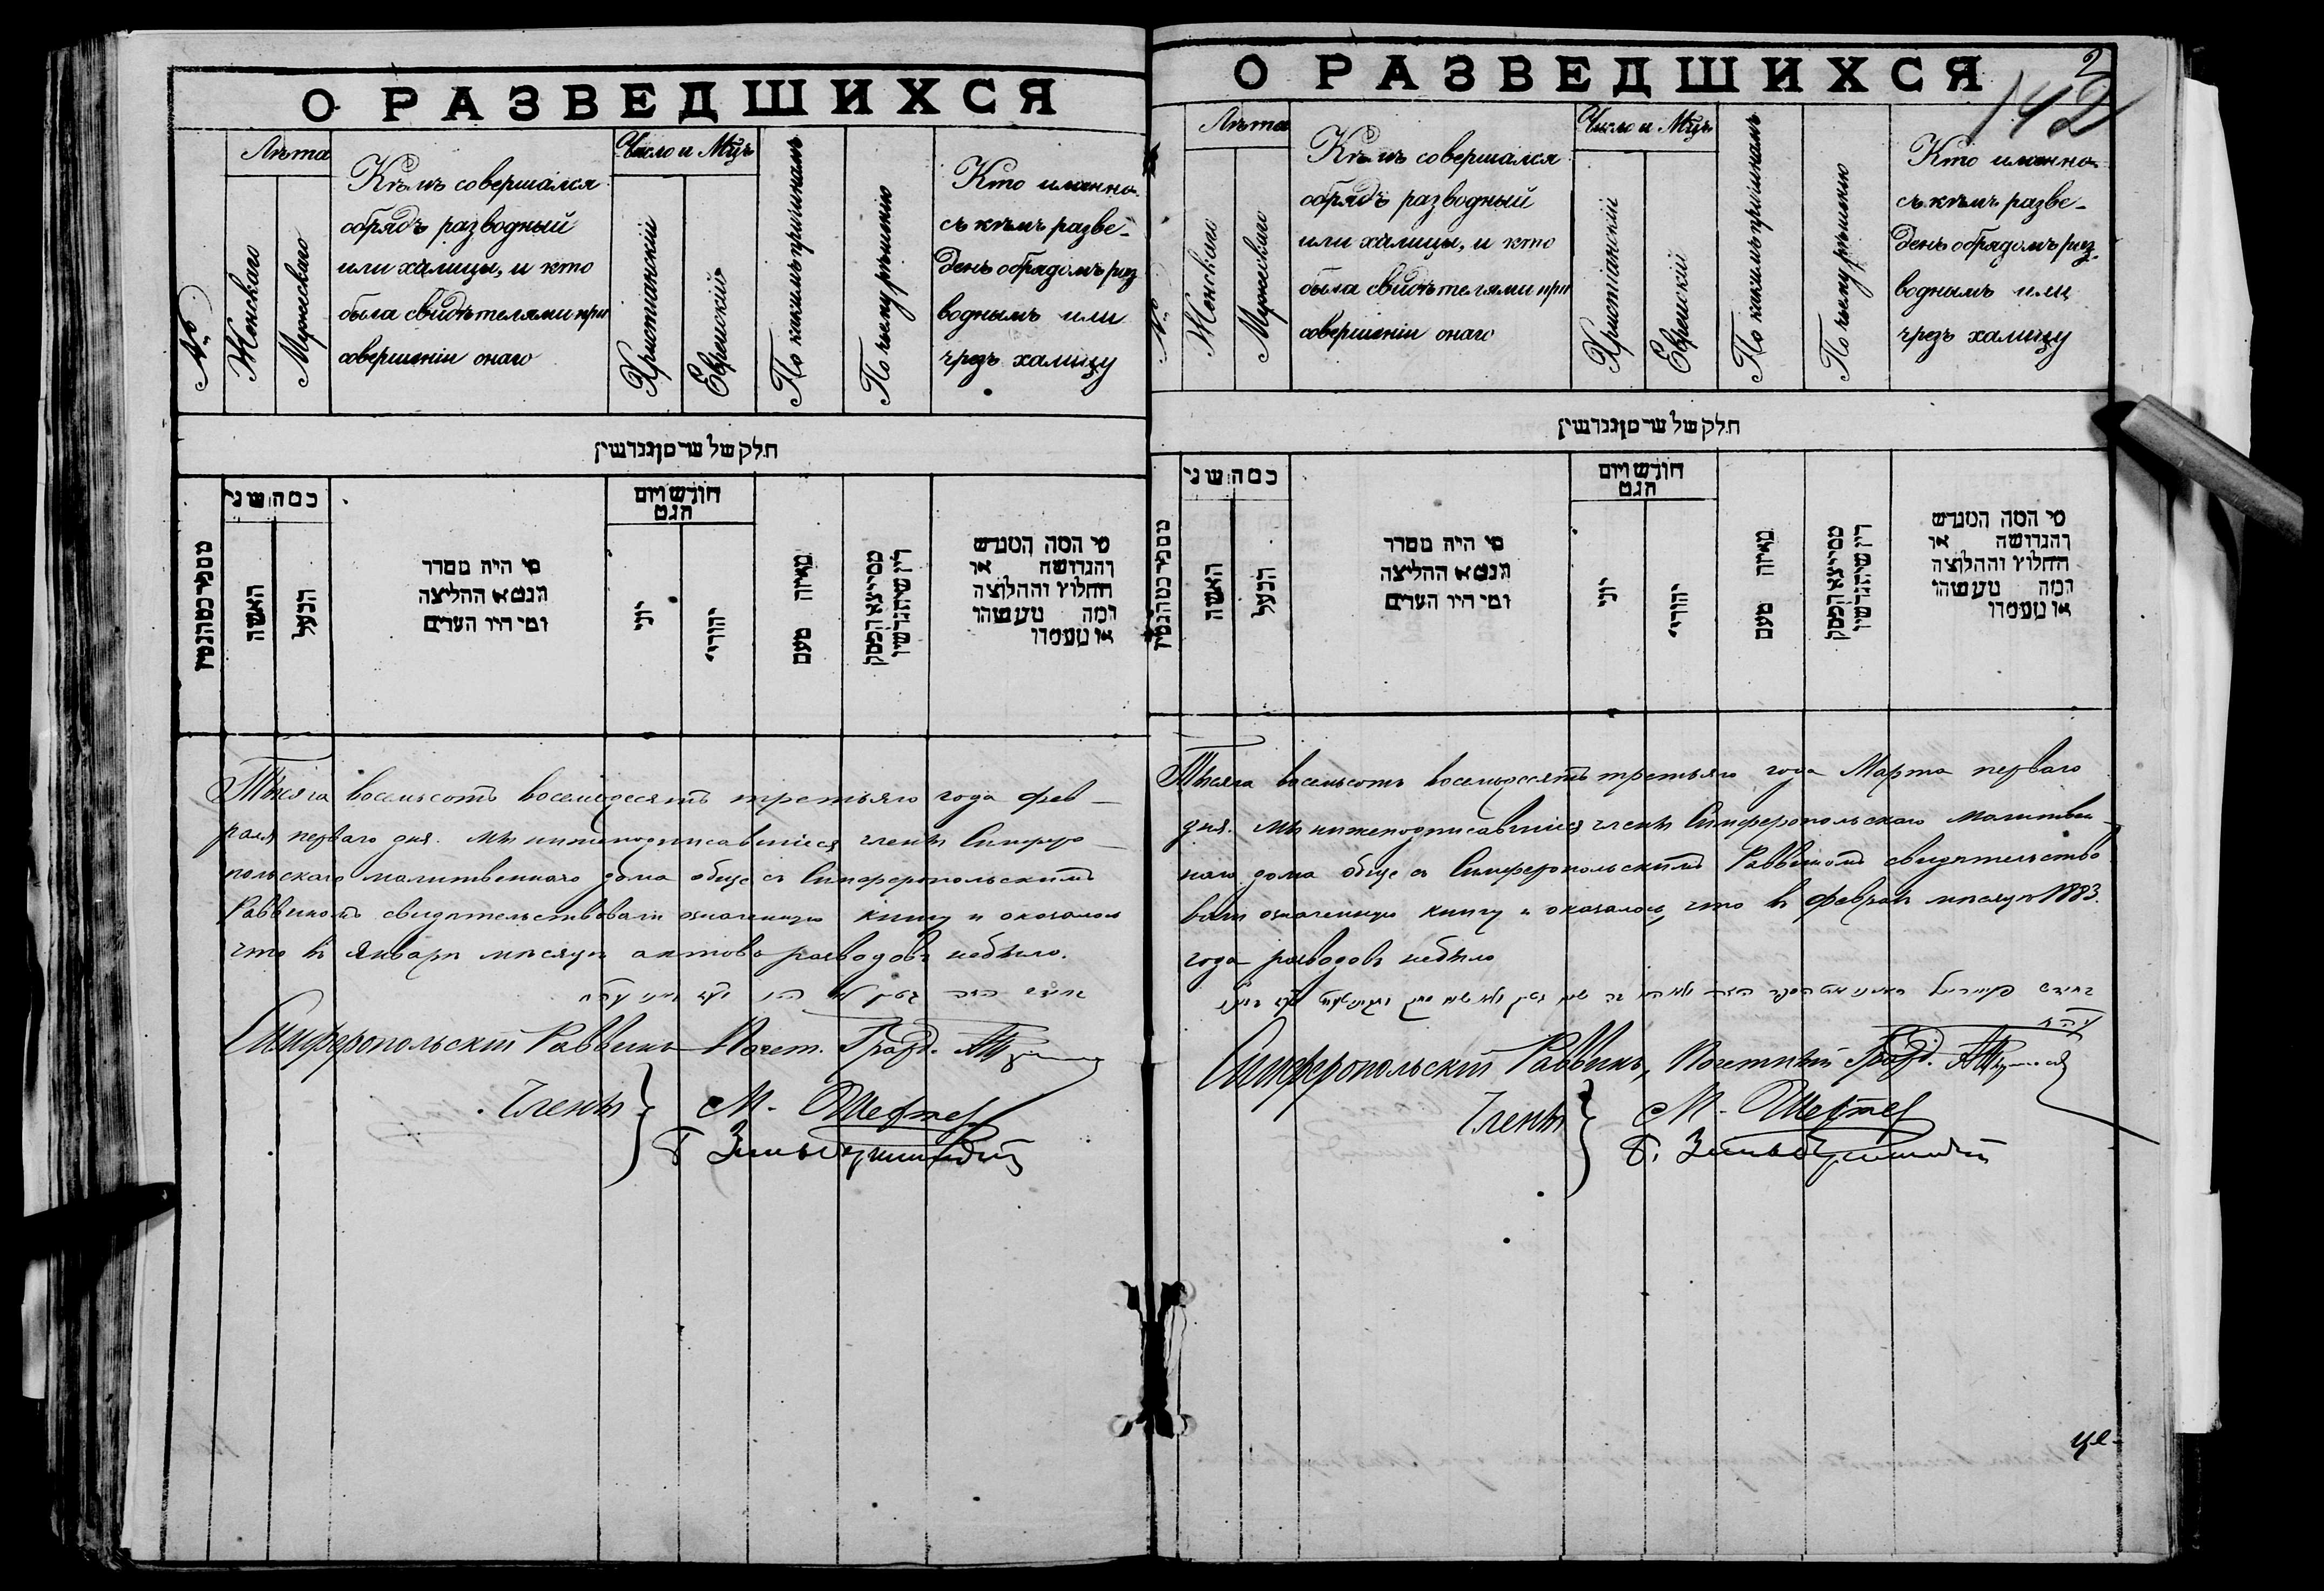 О РАЗВЕДШИХСЯ
№
Лѣта
Женскаго
Мужескаго
Кѣмъ совершался
обрядъ разводный
или халицы, и кто
была свидѣтелями при
совершеніи онаго
Число и Мцъ
Христіанскій
Еврейскій
По какимъ причинамъ
По чьему рѣшенію
Кто именно
съ кѣмъ разве-
денъ обрядомъ раз
воднымъ или
чрезъ халицу
חלק של
כמה שני
האשה
הבעל
מי היה מסדר
הגט א ההליצה
ומי היו העדים
חודש ויום
הגט
יוני
יהודיי
מאיזה טעם
מי המה המגרש
והגרושה או
החלוץ וההלוצה
ומה מעשהו
או מעמדו
Тысяча восемьсотъ восемьдесятъ третьяго года фев-
раля перваго дня. мы нижеподписавшіеся члены Симферо-
польскаго молитвеннаго дома обще съ Симферопольскимъ
Раввиномъ свидѣтельствовали означенную книгу и оказалось
что въ Январѣ мѣсяцѣ актовъ разводовъ небыло.
Симферопольскій Раввинъ Почет. Гражд.
Члены } М.
О РАЗВЕДШИХСЯ
2
142
№
Лѣта
Женскаго
Мужескаго
Кѣмъ совершался
обрядъ разводный
или халицы, и кто
была свидѣтелями при
совершеніи онаго
Число и Мцъ
Христіанскій
Еврейскій
По какимъ причинамъ
По чьему рѣшенію
Кто именно
съ кѣмъ разве-
денъ обрядомъ раз-
воднымъ или
чрезъ халицу
חלק של
כמה שני
האשה
הבעל
מי היה מסדר
הגט א ההליצה
ומי היו העדים
חודש ויום
הגט
יוני
יהודיי
מאיזה טעם
מי המה המגרש
והגרושה או
החלוץ וההלוצה
ומה מעשהו
או מעמדו
Тысяча восемьсотъ восемьдесятъ третьяго года Марта перваго
дня. мы нижеподписавшіеся члены Симферопольскаго молитвен-
наго дома обще съ Симферопольскимъ Раввиномъ свидѣтельство
вали означенную книгу и оказалось, что въ февралѣ мѣсяцѣ 1883.
года разводовъ небыло
Симферопольскій Раввинъ, Почетный Гражд.
Члены } М.